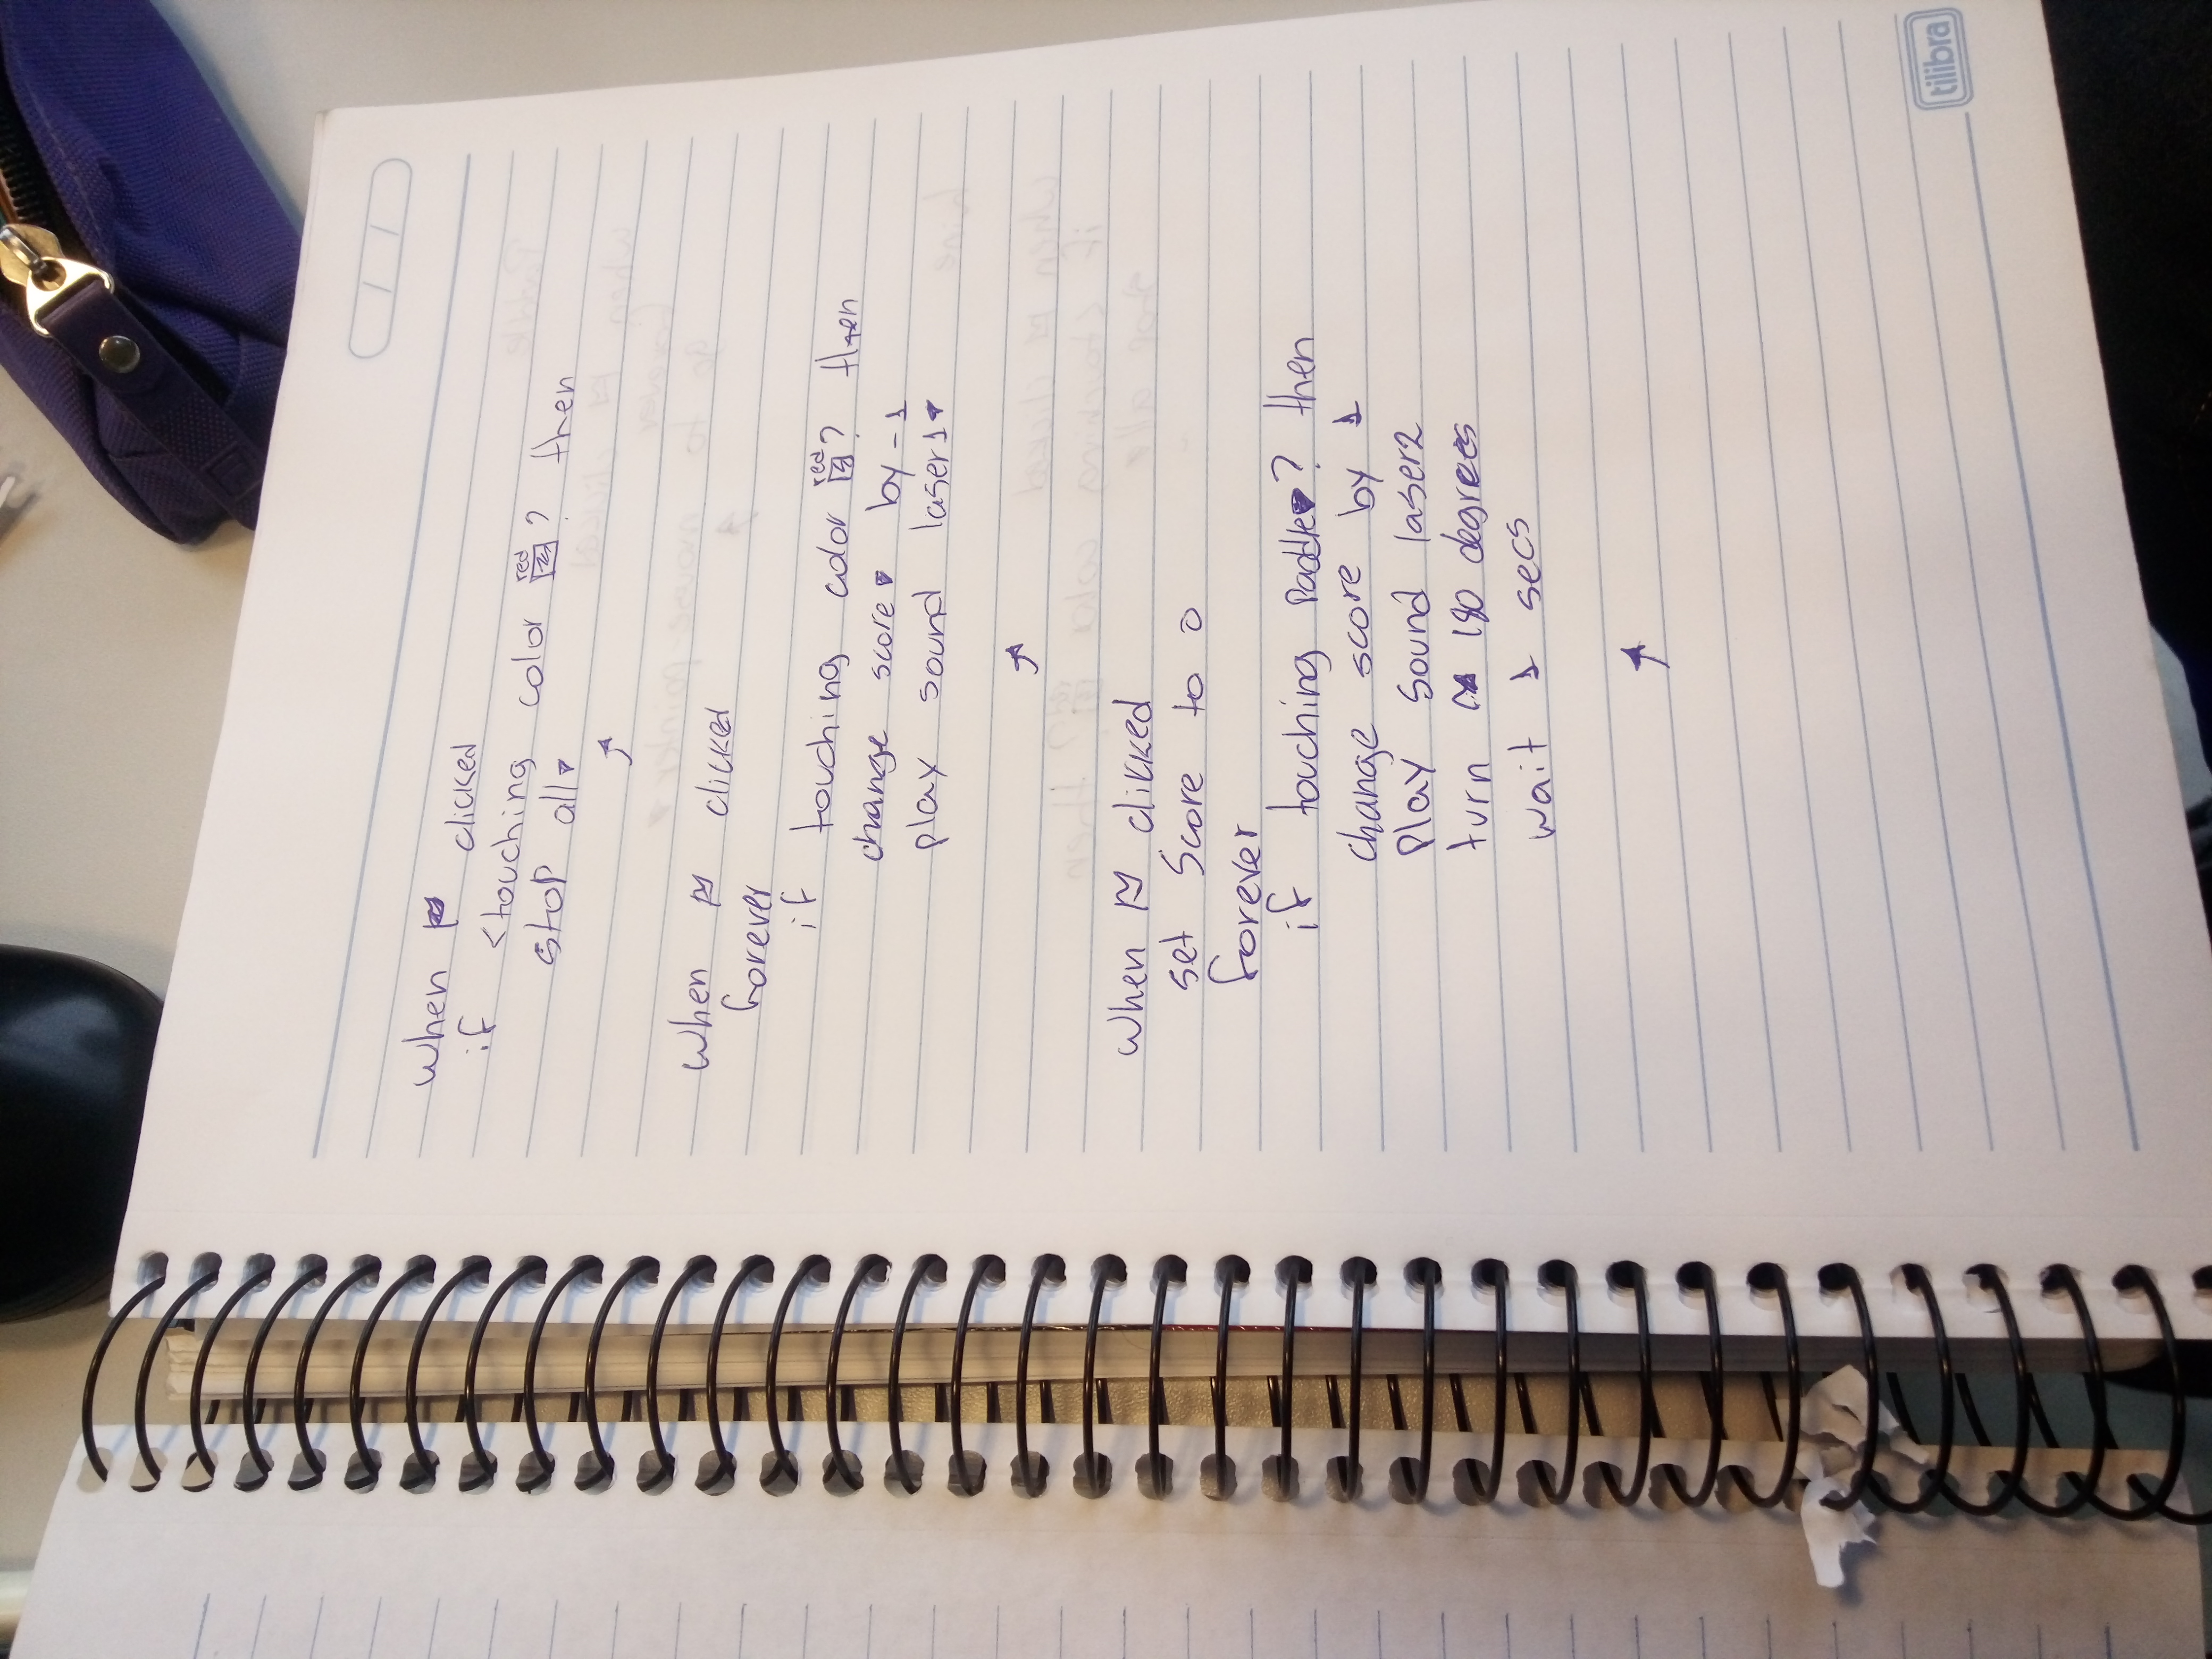 when clicked
if <touching color red ? then
stop all
when clicked
forever
if touching color red ? then
change score by -1
play sound laser1
when clicked
set Score to 0
forever
if touching Paddle ? then
change score by 1
Play sound laser2
turn 180 degrees
wait 1 secs
tilibra